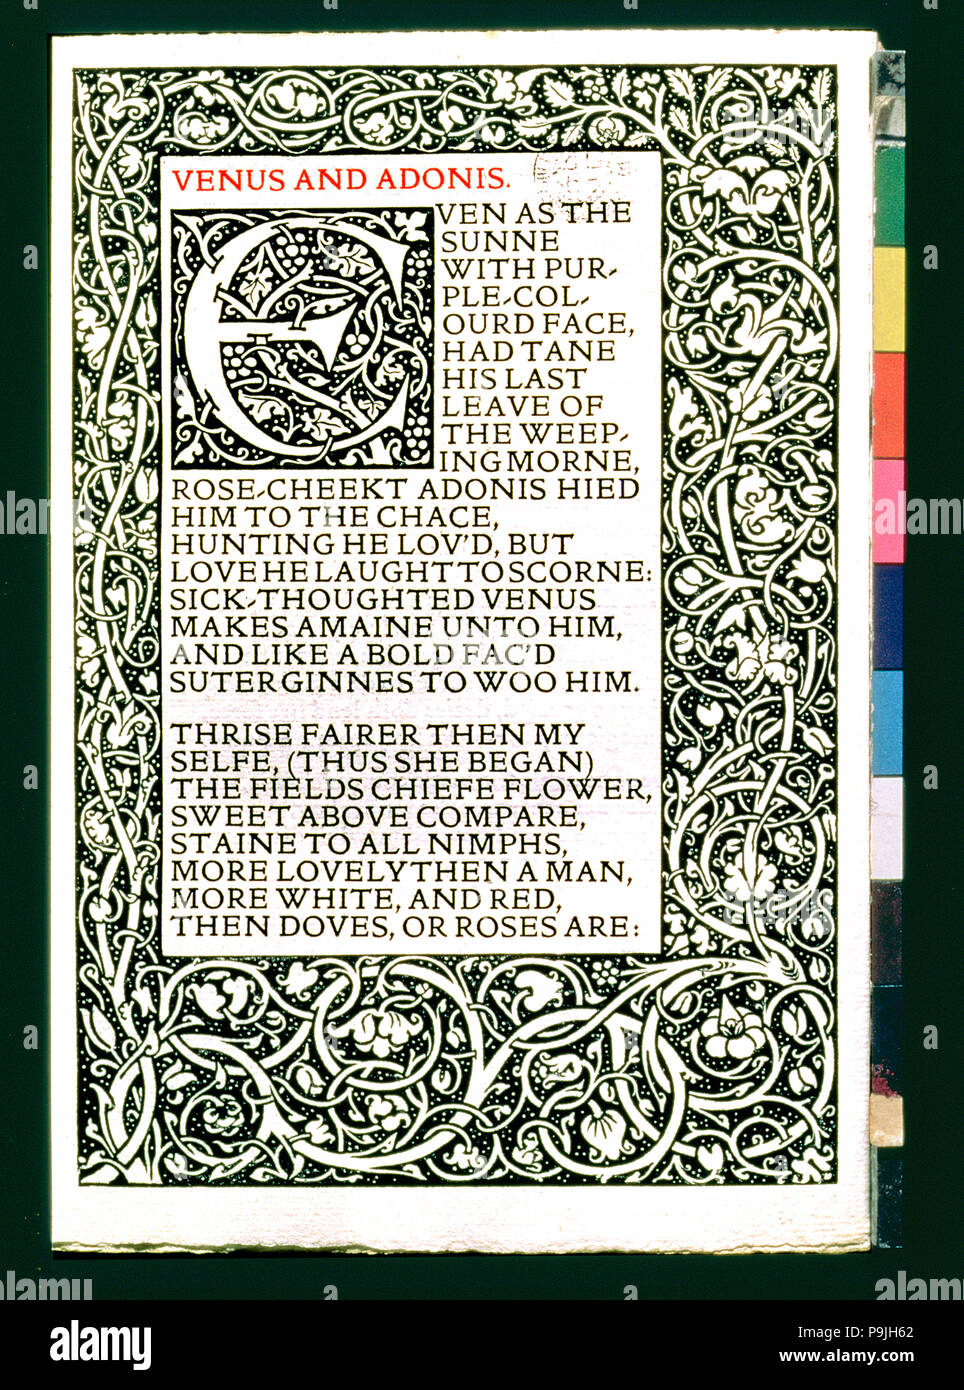 VENUS AND ADONIS.
EVEN AS THE
SUNNE
WITH PUR-
PLE-COL-
OURD FACE,
HAD TANE
HIS LAST
LEAVE OF
THE WEEP-
ING MORNE,
ROSE-CHEEKT ADONIS HIED
HIM TO THE CHACE,
HUNTING HE LOV'D, BUT
LOVE HE LAUGHT TO SCORNE:
SICK-THOUGHTED VENUS
MAKES AMAINE UNTO HIM,
AND LIKE A BOLD FAC'D
SUTER GINNES TO WOO HIM.
THRISE FAIRER THEN MY
SELFE, (THUS SHE BEGAN)
THE FIELDS CHIEFE FLOWER,
SWEET ABOVE COMPARE,
STAINE TO ALL NIMPHS,
MORE LOVELY THEN A MAN,
MORE WHITE, AND RED,
THEN DOVES, OR ROSES ARE:
alamy
Image ID: P9JH62
www.alamy.com